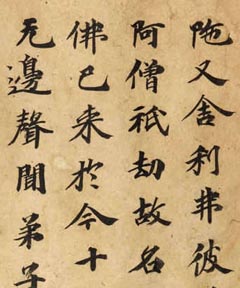 陁又舍利弗彼
阿僧祇劫故名
佛已来於今十
无邊聲聞弟子